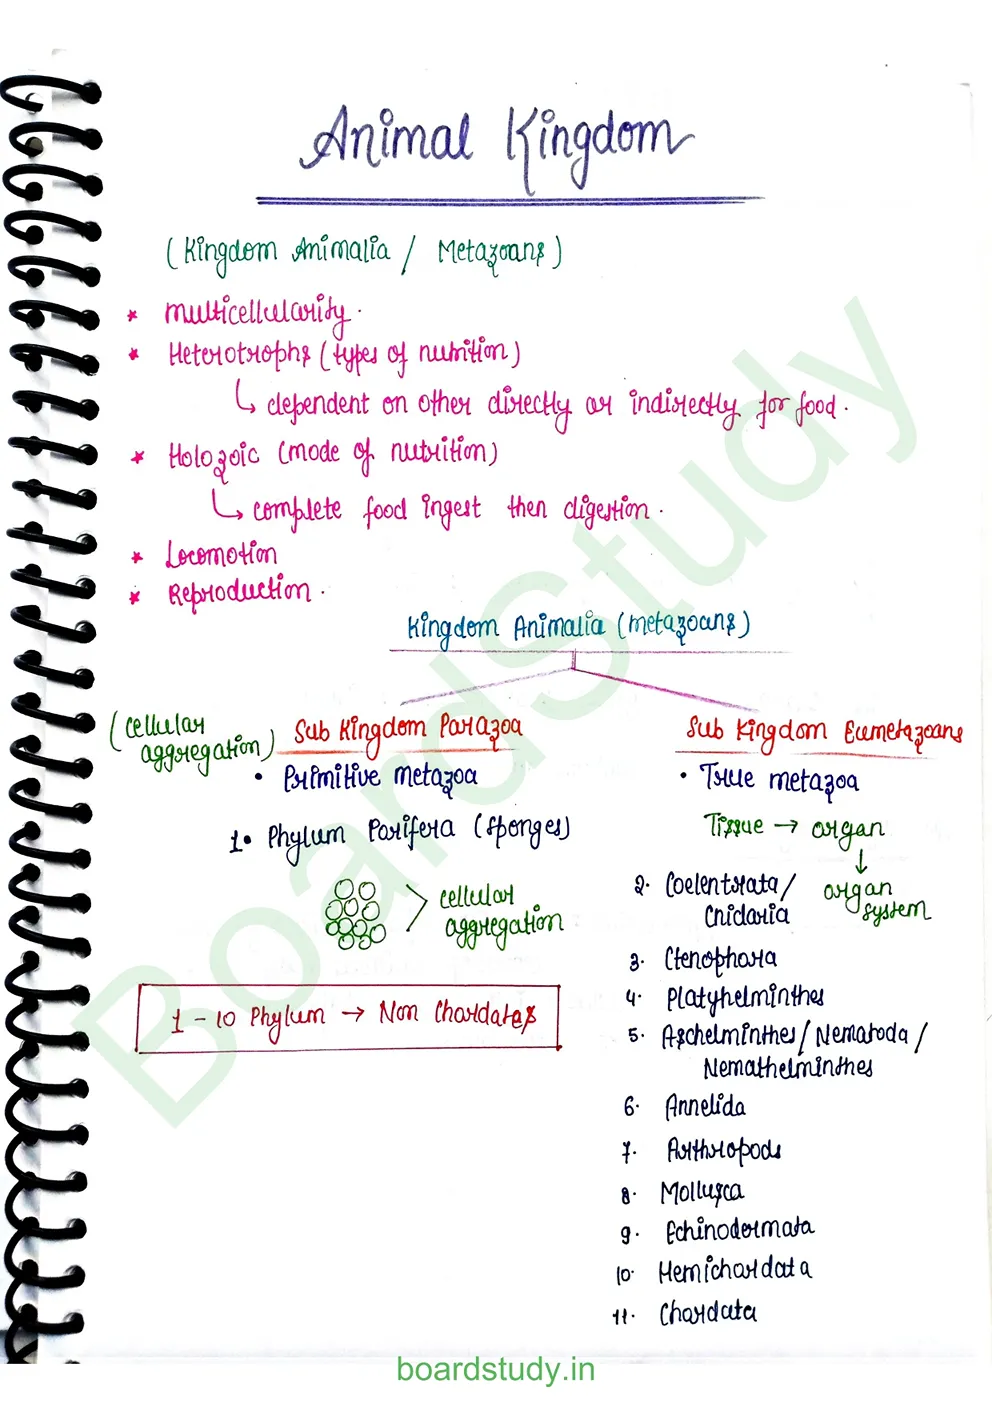 Animal Kingdom
(Kingdom Animalia / Metazoans)
* Multicellularity.
* Heterotrophs (types of nutrition)
↳ dependent on other directly or indirectly for food.
* Holozoic (mode of nutrition)
↳ complete food ingest then digestion.
* Locomotion
* Reproduction.
Kingdom Animalia (metazoans)
(cellular aggregation)
Sub Kingdom Parazoa
• Primitive metazoa
1• Phylum Porifera (Sponges)
cellular
aggregation
1 - 10 Phylum → Non Chordates
Sub Kingdom Eumetazoans
• True metazoa
Tissue → organ
↓
organ
system
2. Coelentrata /
Cnidaria
3. Ctenophora
4. Platyhelminthes
5. Aschelminthes / Nematoda /
Nemathelminthes
6. Annelida
7. Arthropods
8. Mollusca
9. Echinodermata
10. Hemichordata
11. Chordata
BoardStudy
boardstudy.in